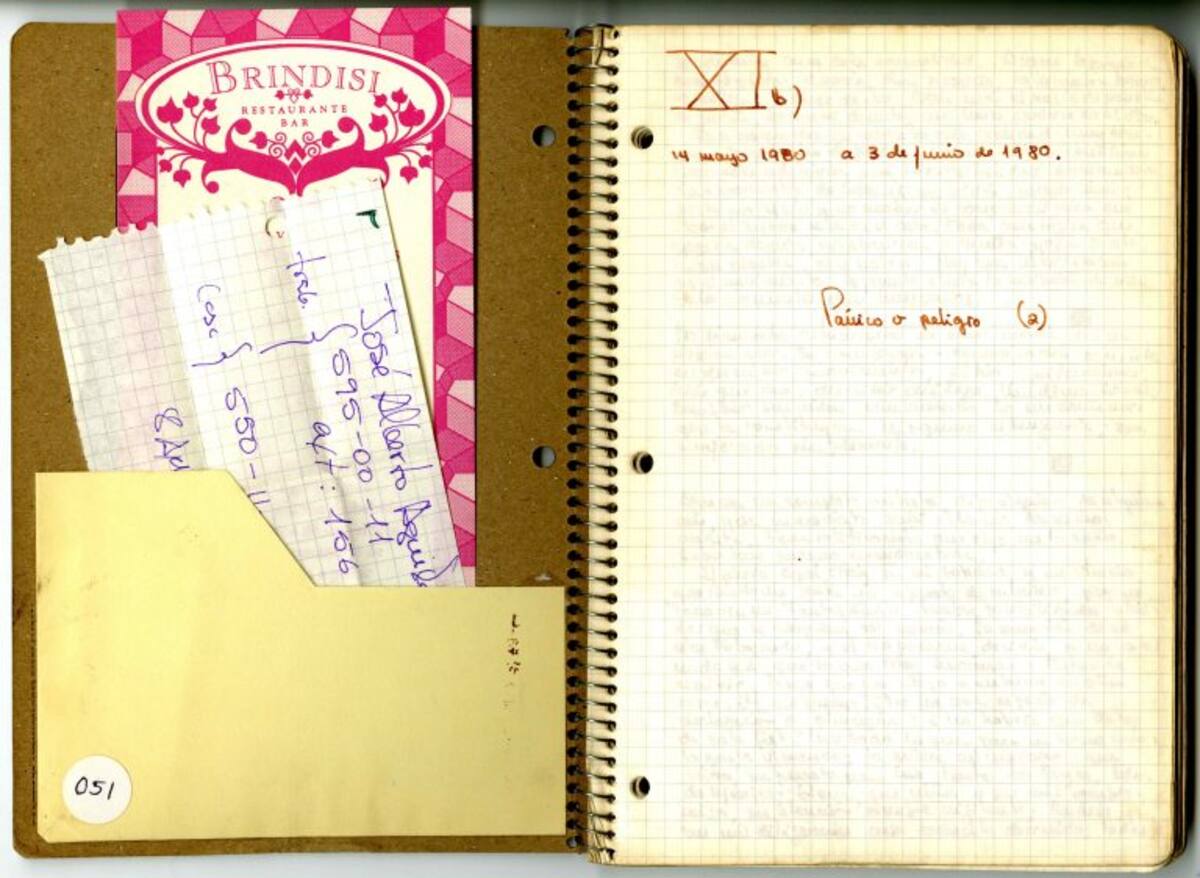 BRINDISI
RESTAURANTE
BAR
José Alberto
trab. } 595-00-11
a/t: 156
casa } 550-11
051
XI b)
14 mayo 1980 a 3 de junio de 1980.
Pánico o peligro (2)